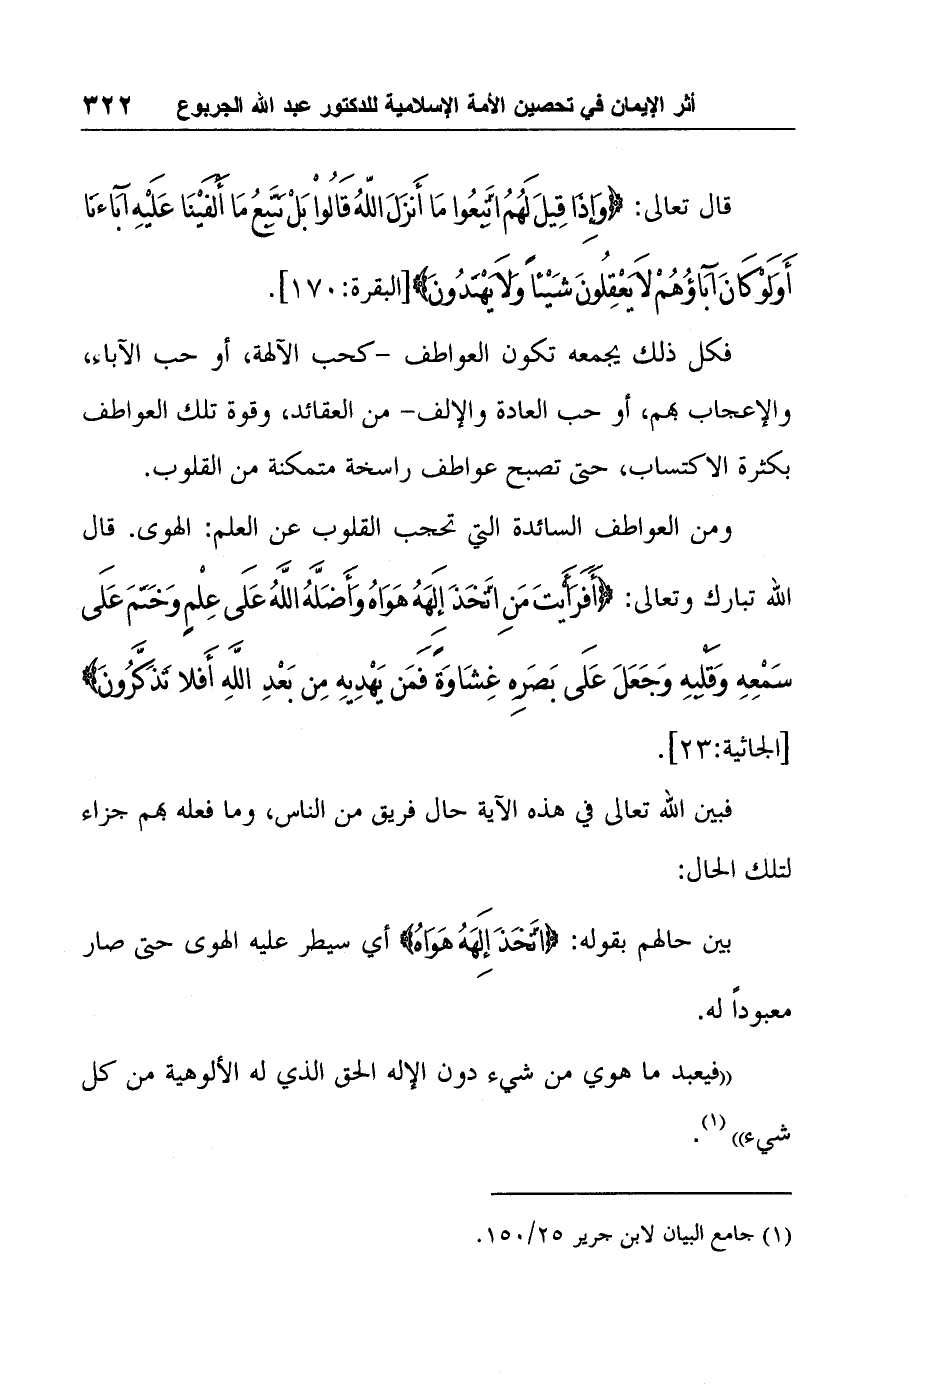 أثر الإيمان في تحصين الأمة الإسلامية للدكتور عبد الله الجربوع ٣٢٢
قال تعالى: ﴿وَإِذَا قِيلَ لَهُمُ اتَّبِعُوا مَا أَنزَلَ اللَّهُ قَالُواْ بَلْ نَتَّبِعُ مَا أَلْفَيْنَا عَلَيْهِ آبَاءَنَا
أَوَلَوْ كَانَ آبَاؤُهُمْ لاَ يَعْقِلُونَ شَيْئاً وَلاَ يَهْتَدُونَ﴾[البقرة:١٧٠].
فكل ذلك يجمعه تكون العواطف –كحب الآلهة، أو حب الآباء،
والإعجاب بهم، أو حب العادة والإلف– من العقائد، وقوة تلك العواطف
بكثرة الاكتساب، حتى تصبح عواطف راسخة متمكنة من القلوب.
ومن العواطف السائدة التي تحجب القلوب عن العلم: الهوى. قال
الله تبارك وتعالى: ﴿أَفَرَأَيْتَ مَنِ اتَّخَذَ إِلَهَهُ هَوَاهُ وَأَضَلَّهُ اللَّهُ عَلَى عِلْمٍ وَخَتَمَ عَلَى
سَمْعِهِ وَقَلْبِهِ وَجَعَلَ عَلَى بَصَرِهِ غِشَاوَةً فَمَن يَهْدِيهِ مِن بَعْدِ اللَّهِ أَفَلا تَذَكَّرُونَ﴾
[الجاثية:٢٣].
فبين الله تعالى في هذه الآية حال فريق من الناس، وما فعله بهم جزاء
لتلك الحال:
بين حالهم بقوله: ﴿اتَّخَذَ إِلَهَهُ هَوَاهُ﴾ أي سيطر عليه الهوى حتى صار
معبوداً له.
((فيعبد ما هوي من شيء دون الإله الحق الذي له الألوهية من كل
شيء))(١).
(١) جامع البيان لابن جرير ١٥٠/٢٥.